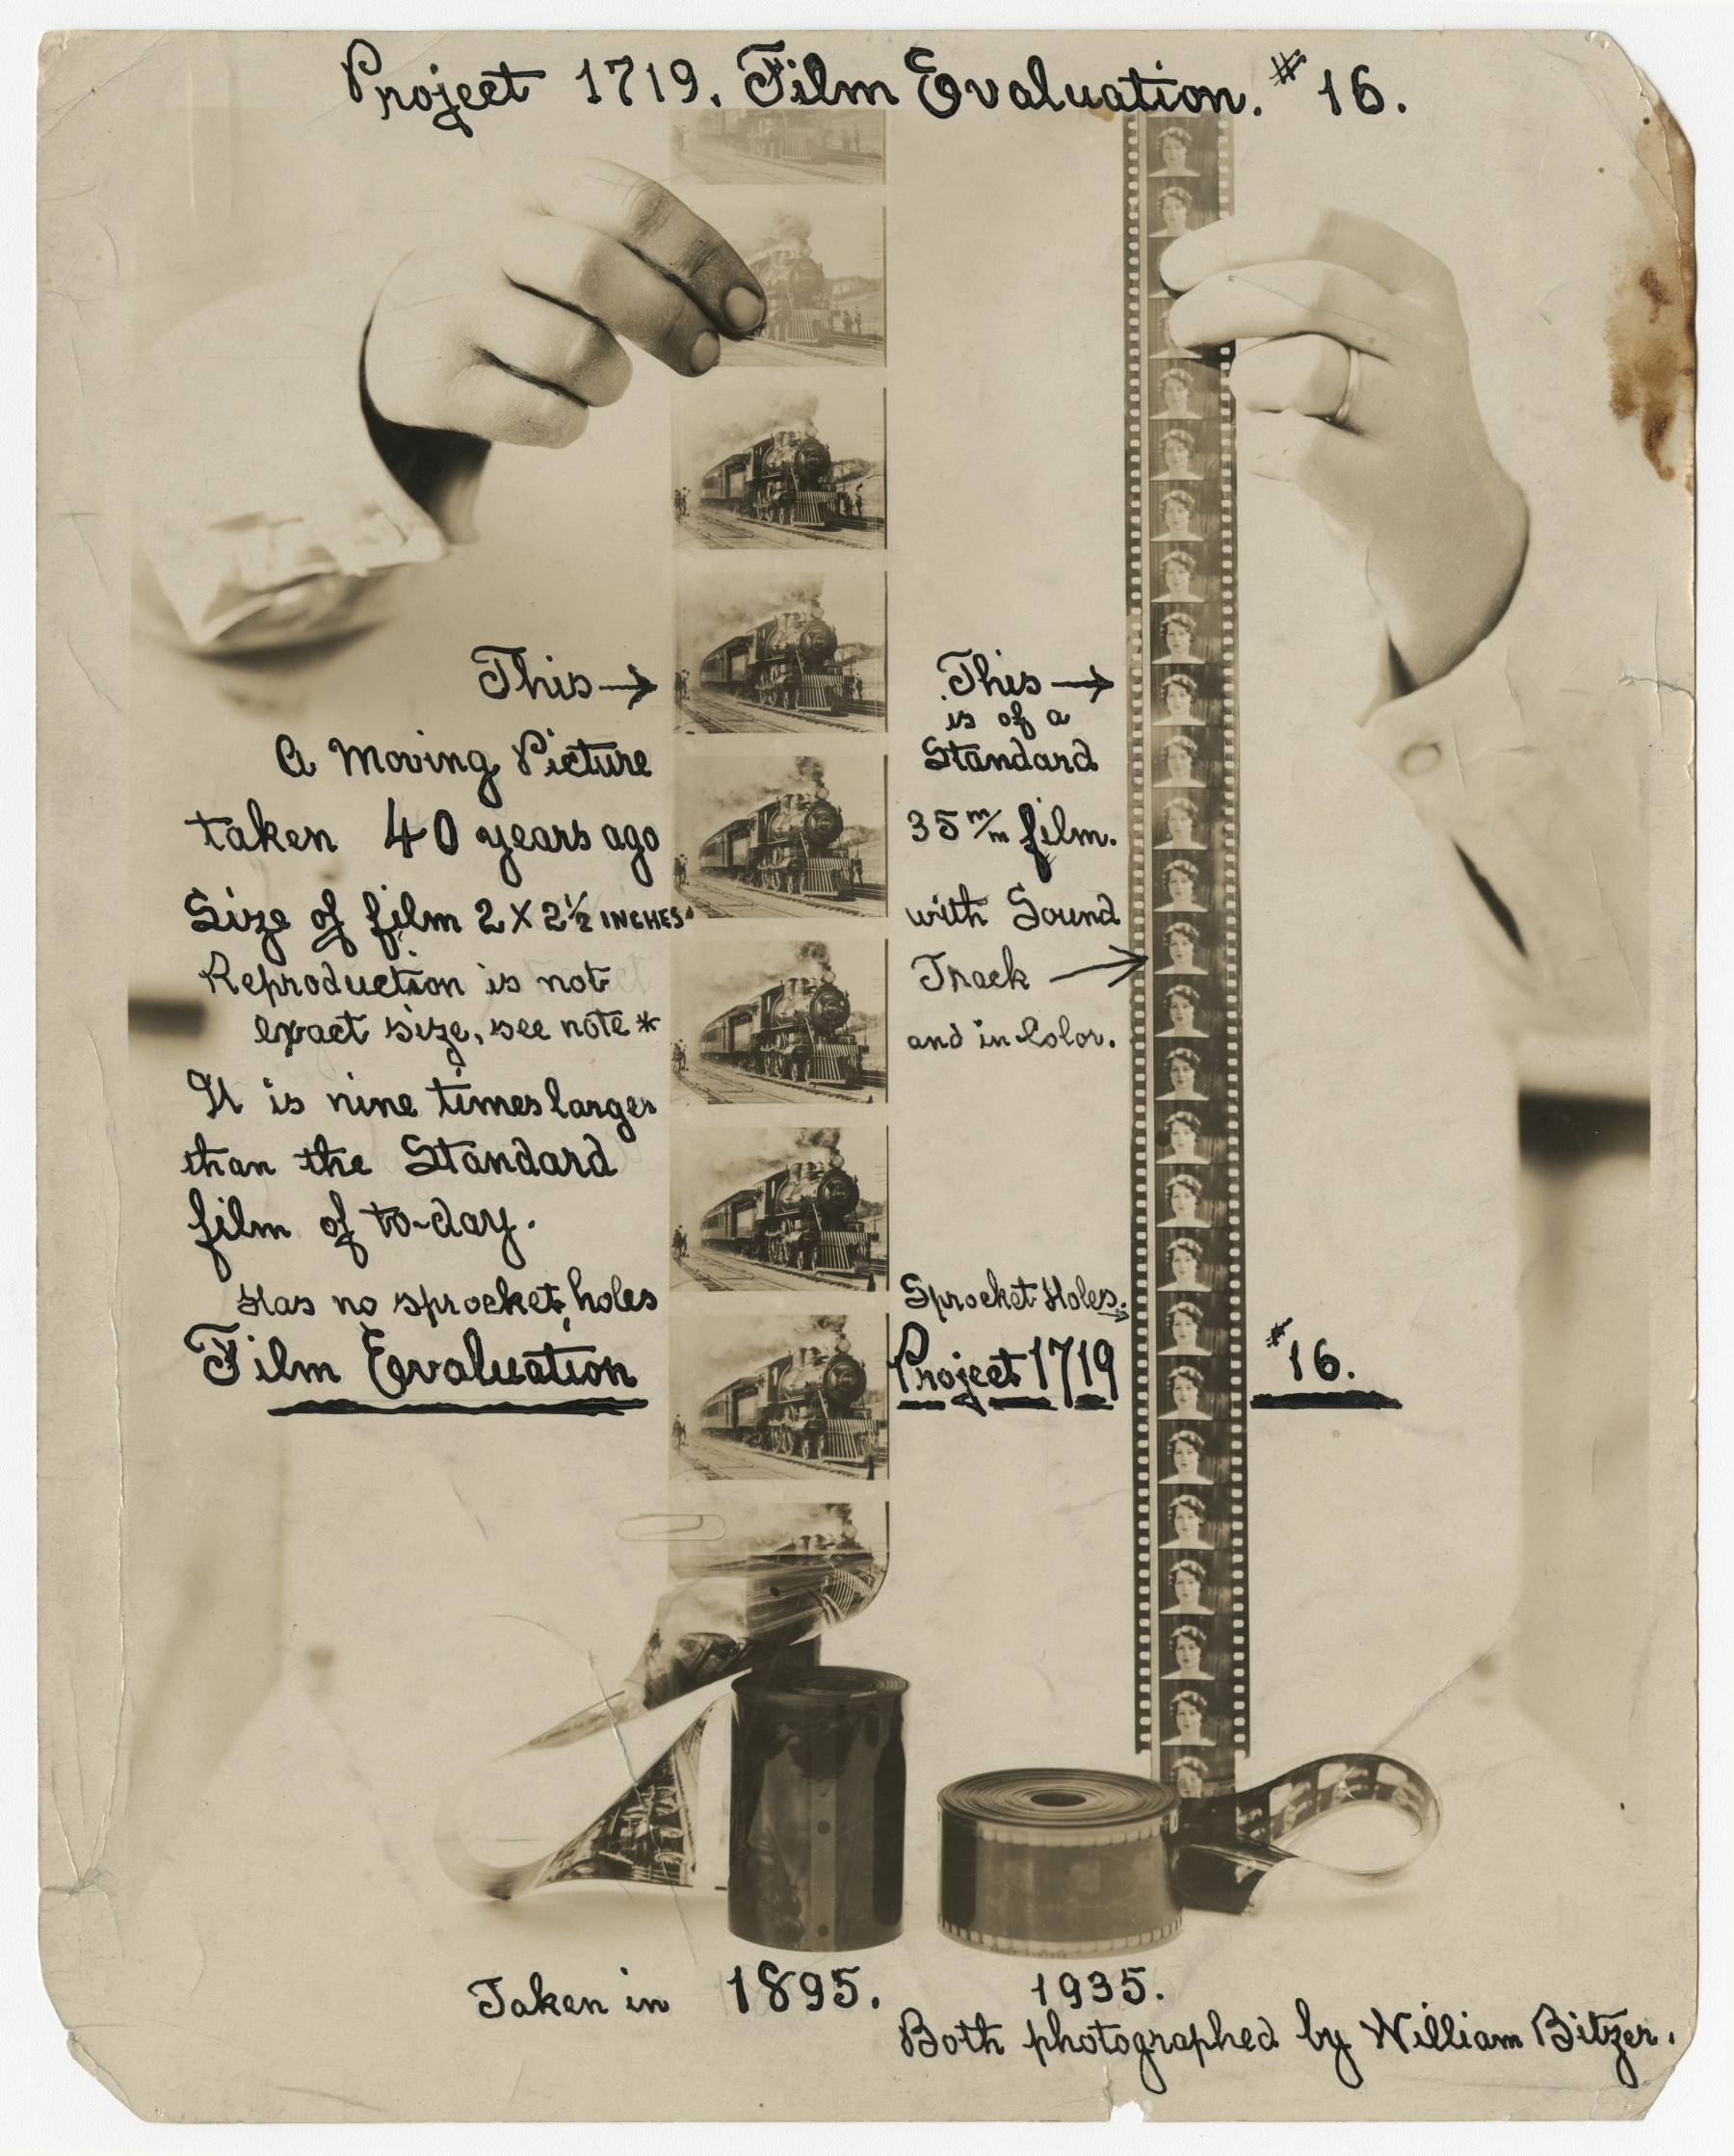 Project 1719. Film Evaluation. # 16.
This →
A Moving Picture
taken 40 years ago
Size of film 2 X 2½ INCHES
Reproduction is not
exact size, see note *
It is nine times larger
than the Standard
film of to-day.
Has no sprocket holes
Film Evaluation
This →
is of a
Standard
35 m/m film.
with Sound
Track →
and in Color.
Sprocket Holes. →
Project 1719
# 16.
Taken in 1895.
1935.
Both photographed by William Bitzer.